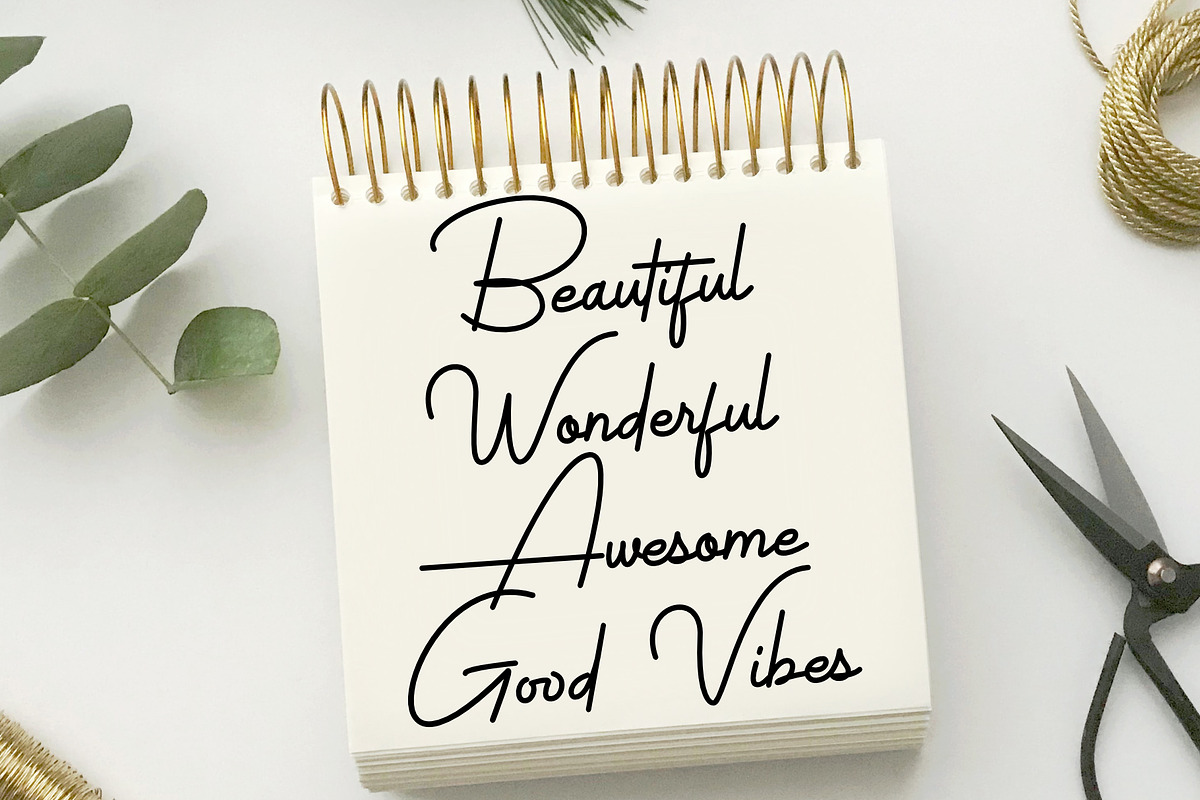 Beautiful
Wonderful
Awesome
Good Vibes